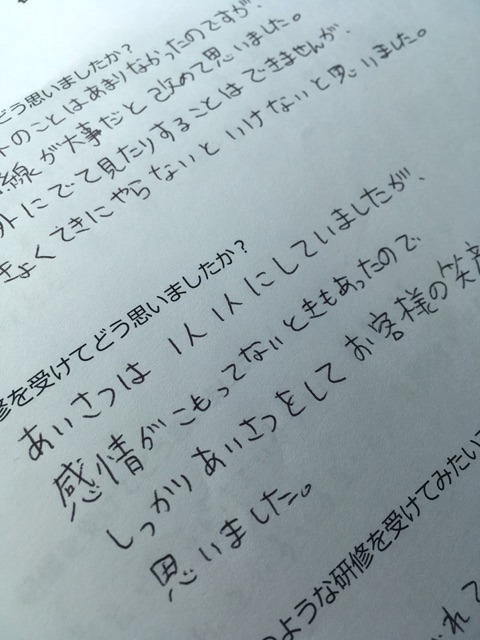 どう思いましたか?
のことはあまりなかったのですが、
線が大事だと改めて思いました。
外にでて見たりすることはできませんが、
きょくてきにやらないといけないと思いました。
修を受けてどう思いましたか?
あいさつは1人1人にしていましたが、
感情がこもってないときもあったので
しっかりあいさつをしてお客様の笑
思いました。
のような研修を受けてみたい
れて